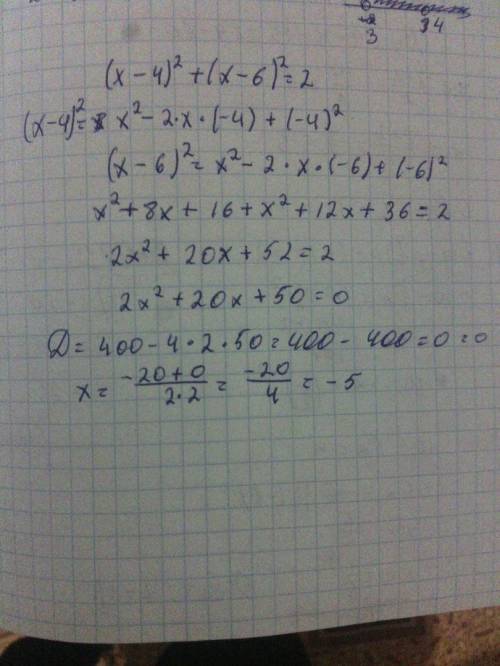 3 34
(x-4)² + (x-6)² = 2
(x-4)² = x² - 2·x·(-4) + (-4)²
(x-6)² = x² - 2·x·(-6) + (-6)²
x² + 8x + 16 + x² + 12x + 36 = 2
2x² + 20x + 52 = 2
2x² + 20x + 50 = 0
D = 400 - 4·2·50 = 400 - 400 = 0 = 0
x = \frac{-20+0}{2·2} = \frac{-20}{4} = -5